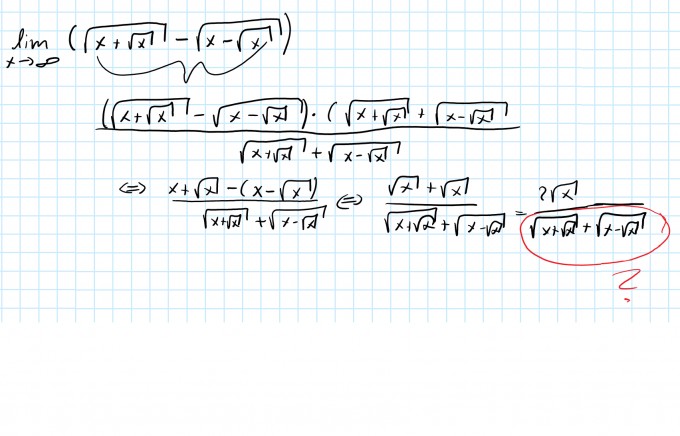 lim x→∞ (√(x + √x) − √(x − √x))
((√(x+√x) − √(x − √x)) · (√(x+√x) + √(x−√x)
√(x+√x) + √(x−√x)
⇔ (x+√x − (x−√x)) / (√(x+√x) + √(x−√x)) ⇔ (√x + √x) / (√(x+√x) + √(x−√x)) = 2√x / (√(x+√x) + √(x−√x))
?